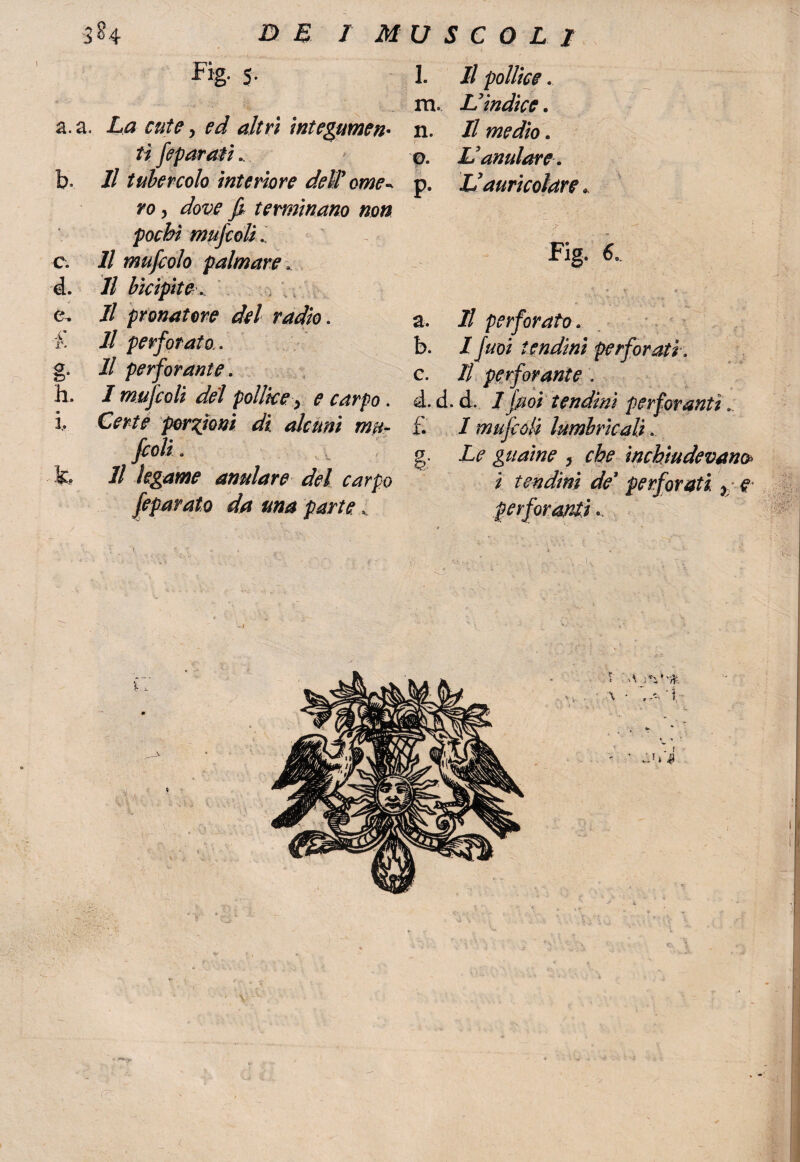 384 DE I MUSCOLI
Fig. 5.
a. a. La cute, ed altri integumen-
ti ſeparati.
b. Il tubercolo interiore dell' ome-
ro, dove ſi terminano non
pochi muſcoli.
c. Il muſcolo palmare.
d. Il bicipite.
e. Il pronatore del radio.
f. Il perforato.
g. Il perforante.
h. I muſcoli del pollice, e carpo.
i. Certe porzioni di alcuni mu-
ſcoli.
k. Il legame anulare del carpo
ſeparato da una parte.
l. Il pollice.
m. L'indice.
n. Il medio.
o. L'anulare.
p. L'auricolare.
Fig. 6.
a. Il perforato.
b. I ſuoi tendini perforati.
c. Il perforante.
d. d. d. I ſuoi tendini perforanti.
f. I muſcoli lumbricali.
g. Le guaine, che inchiudevano
i tendini de' perforati, e
perforanti.